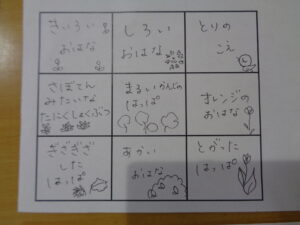 きいろい
おはな
しろい
おはな
とりの
こえ
さぼてん
みたいな
たにくしょくぶつ
まるいかんじの
はっぱ
オレンジの
おはな
ぎざぎざ
した
はっぱ
あかい
おはな
とがった
はっぱ